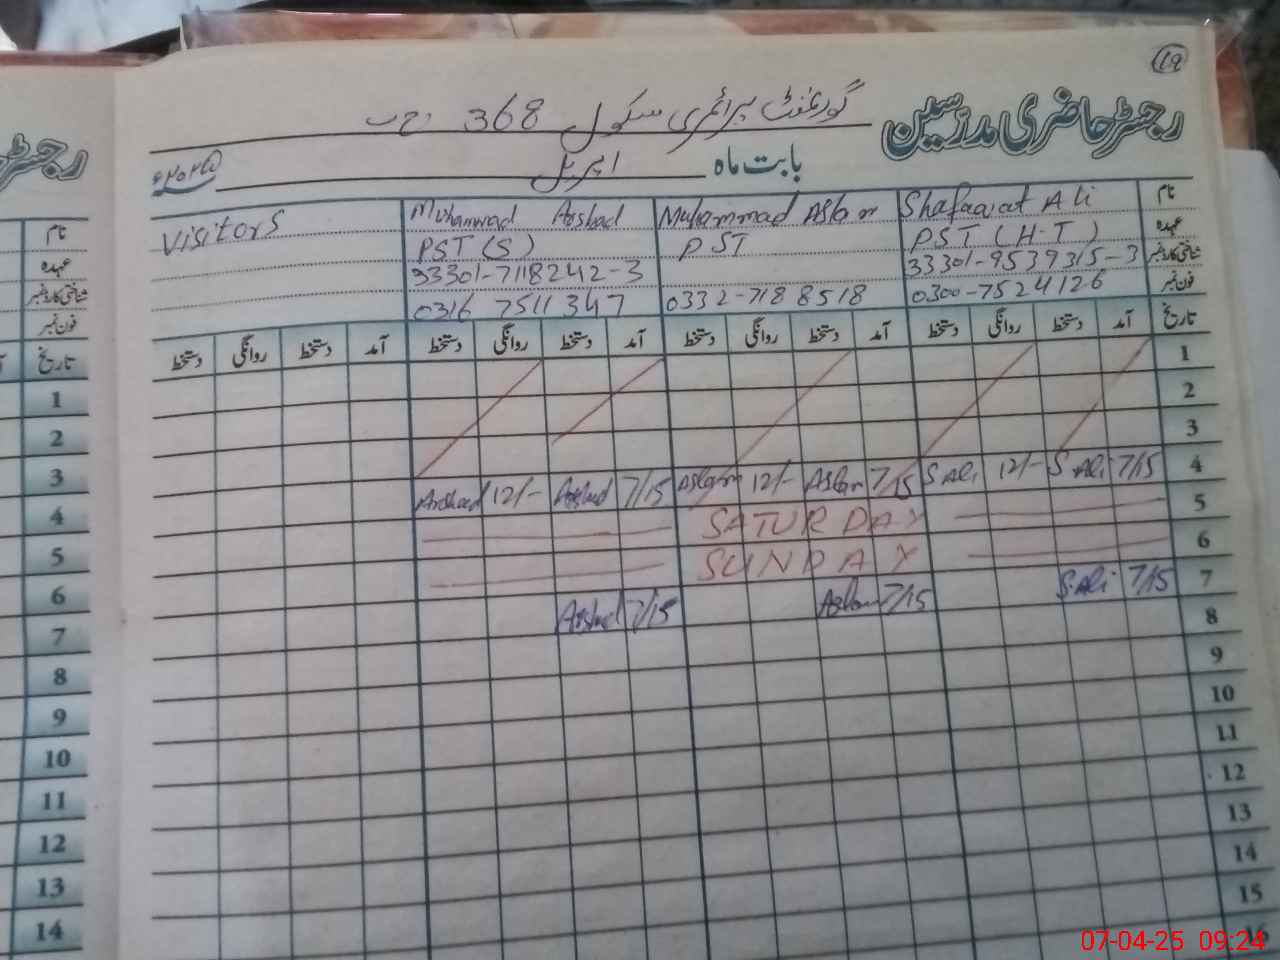 19
رجسٹر حاضری مدرسین گورنمنٹ پرائمری سکول 368 ج ب
بابت ماہ اپریل ۲۰۲۵ء
نام Shafaawat Ali Muhammad Aslam Muhammad Arshad Visitors
عہدہ PST (H.T) PST PST (S)
شناختی کارڈ نمبر 33301-9539315-3 33301-7118242-3
فون نمبر 0300-7524126 0332-7188518 0316 7511347
تاریخ آمد دستخط روانگی دستخط آمد دستخط روانگی دستخط آمد دستخط روانگی دستخط آمد دستخط روانگی دستخط
1
2
3
4 7/15 S.Ali 12/- S.Ali 7/15 Aslam 12/- Aslam 7/15 Arshad 12/- Arshad
5 SATURDAY
6 SUNDAY
7 7/15 S.Ali 7/15 Aslam 7/15 Arshad
8
9
10
11
12
13
14
15
16
نام
عہدہ
شناختی کارڈ نمبر
فون نمبر
تاریخ
1
2
3
4
5
6
7
8
9
10
11
12
13
14
07-04-25 09:24